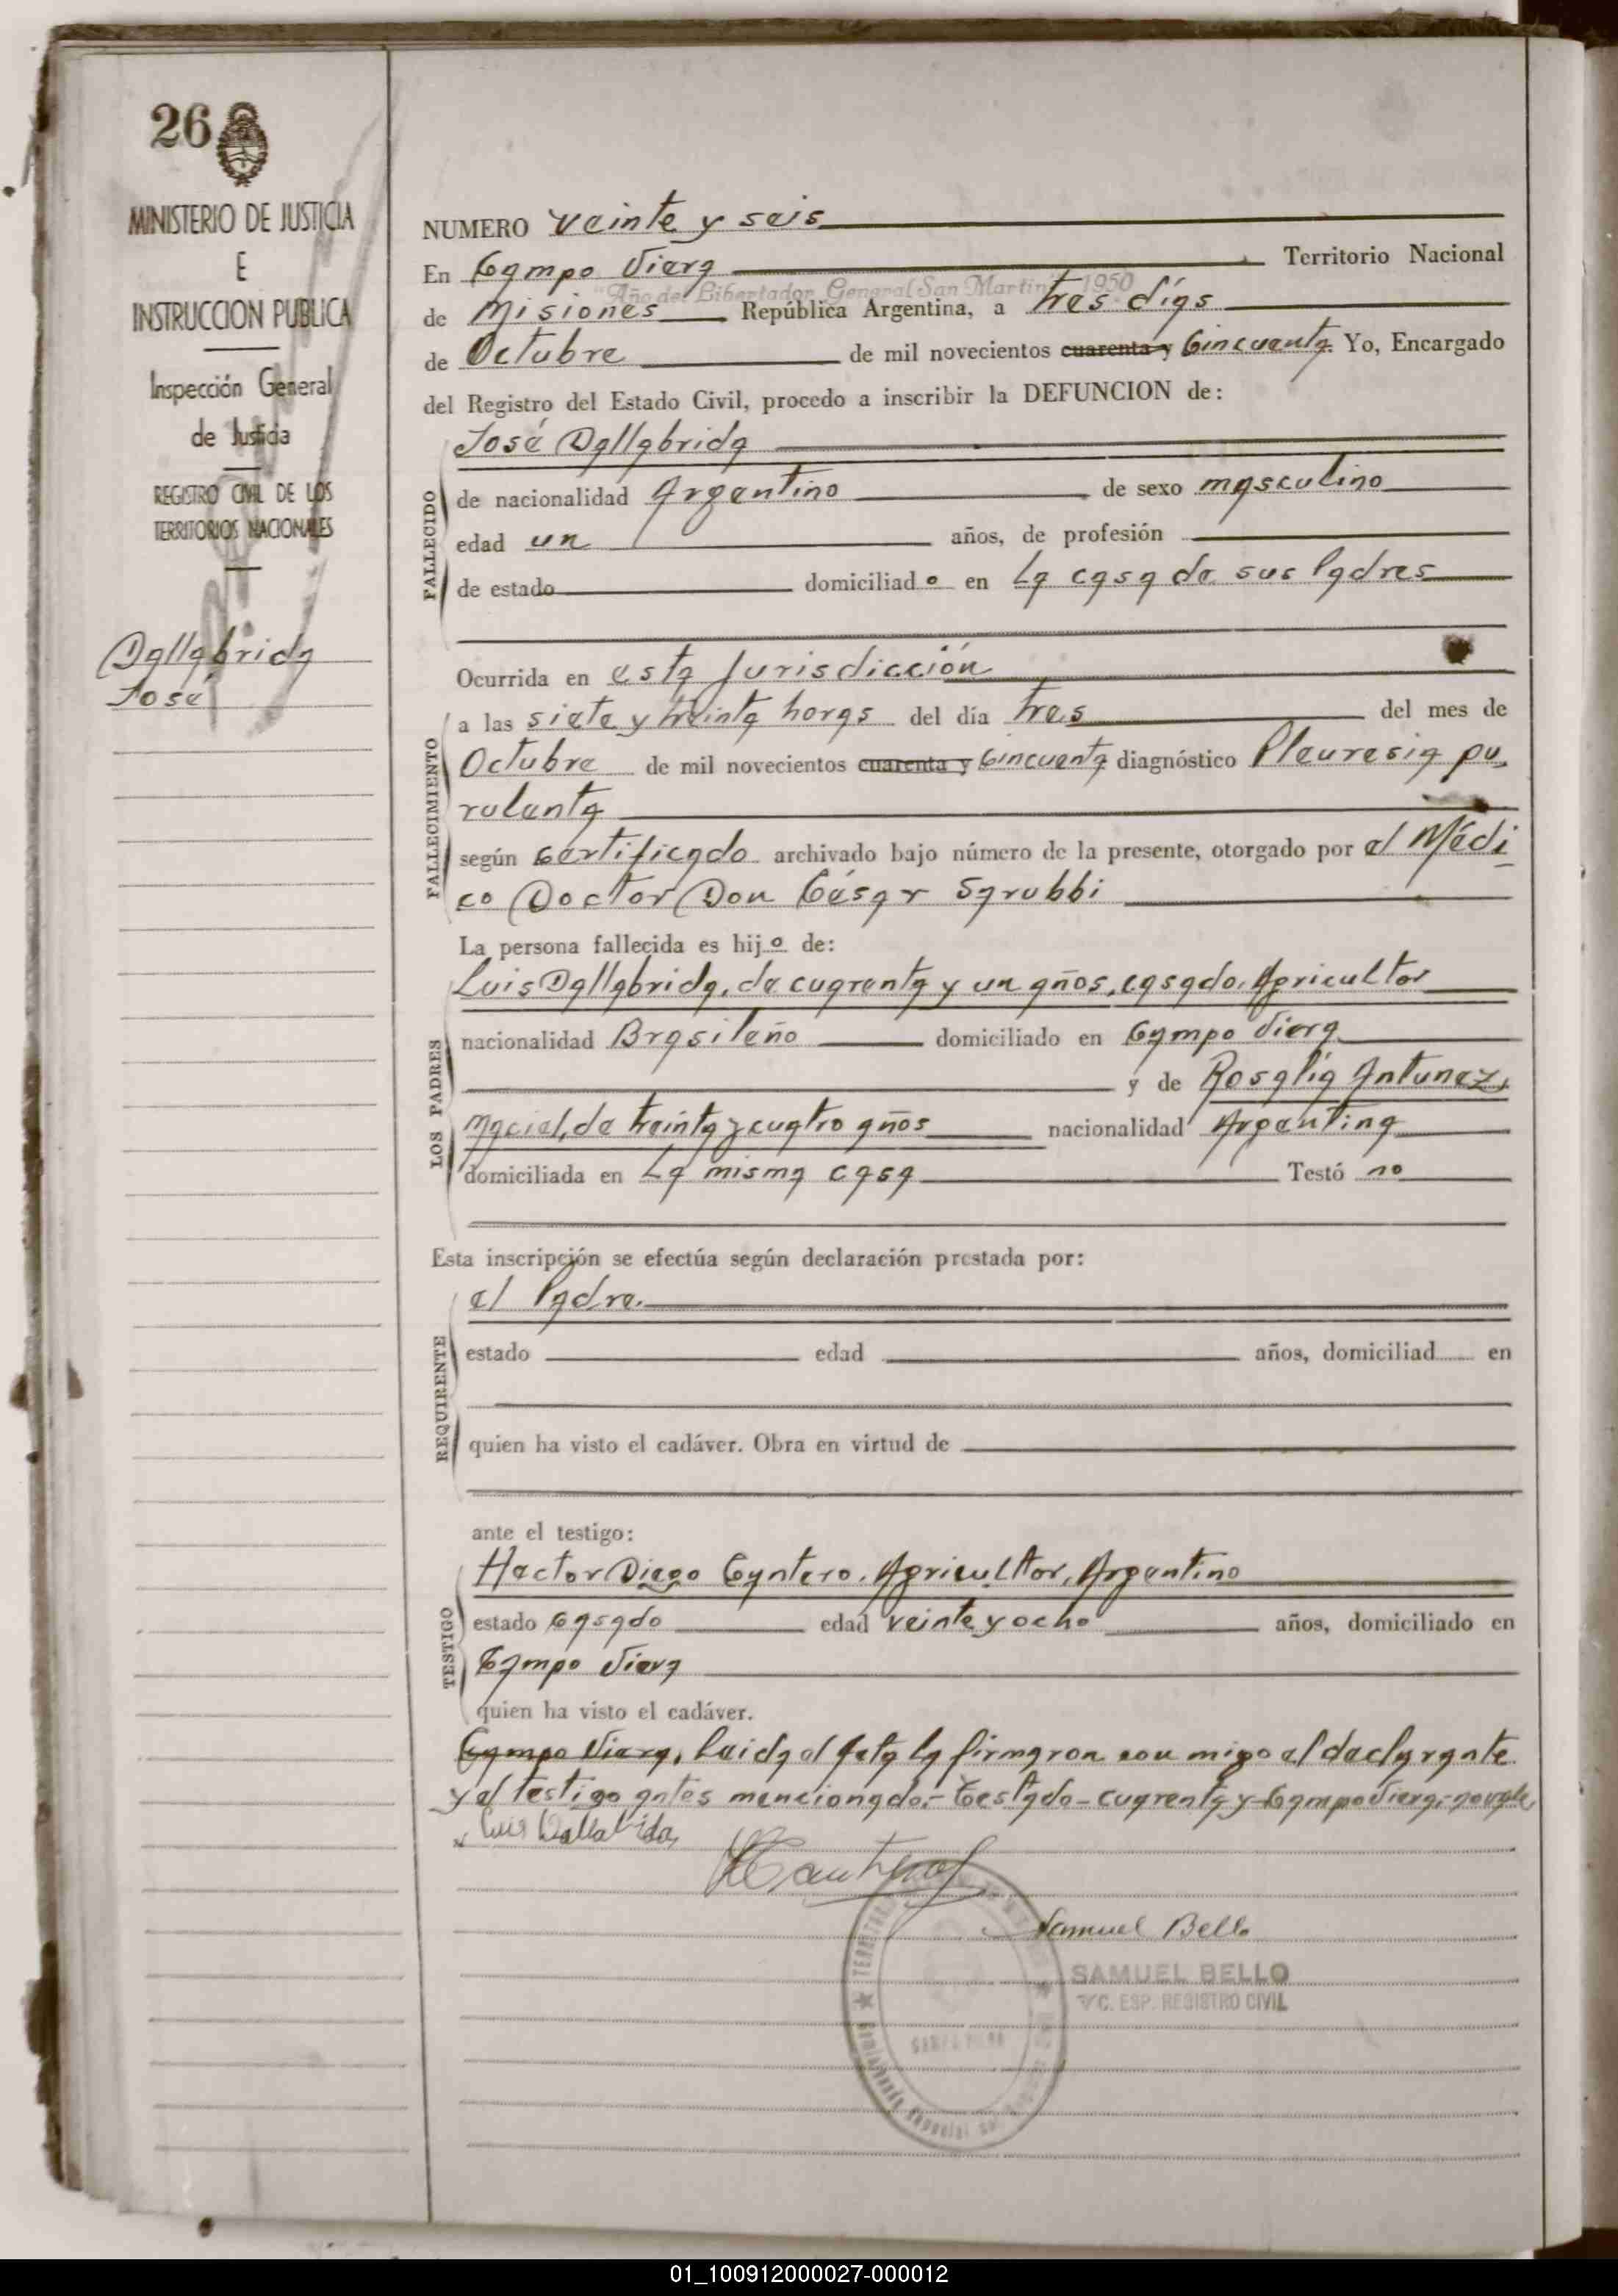 26
MINISTERIO DE JUSTICIA
E
INSTRUCCION PUBLICA
Inspección General
de Justicia
REGISTRO CIVIL DE LOS
TERRITORIOS NACIONALES
Dallabrida
José
NUMERO veinte y seis
En Campo Viera Territorio Nacional
"Año del Libertador General San Martin" 1950
de Misiones República Argentina, a tres días
de Octubre de mil novecientos cuarenta y Cincuenta. Yo, Encargado
del Registro del Estado Civil, procedo a inscribir la DEFUNCION de:
José Dallabrida
FALLECIDO
de nacionalidad Argentino de sexo masculino
edad un años, de profesión
de estado domiciliado en La casa de sus Padres
Ocurrida en esta Jurisdicción
FALLECIMIENTO
a las siete y treinta horas del día tres del mes de
Octubre de mil novecientos cuarenta y Cincuenta diagnóstico Pleuresia pu
rulenta
según Certificado archivado bajo número de la presente, otorgado por el Médi
co Doctor Don César Sarubbi
La persona fallecida es hijo de:
LOS PADRES
Luis Dallabrida, de cuarenta y un años, casado, Agricultor
nacionalidad Brasileño domiciliado en Campo Viera
y de Rosalia Antunez,
Maciel, de treinta y cuatro años nacionalidad Argentina
domiciliada en La misma casa Testó no
Esta inscripción se efectúa según declaración prestada por:
REQUIRENTE
el Padre.
estado edad años, domiciliad en
quien ha visto el cadáver. Obra en virtud de
ante el testigo:
TESTIGO
Hector Diego Cantero, Agricultor, Argentino
estado Casado edad veinte y ocho años, domiciliado en
Campo Viera
quien ha visto el cadáver.
Campo Viera, Leida el Acta la firmaron con migo el declarante
y el testigo antes mencionado.- Testado- cuarenta y- Campo Viera,- no vale,
Luis Dallabrida
HCantero
Samuel Bello
SAMUEL BELLO
C. ESP. REGISTRO CIVIL
01_100912000027-000012